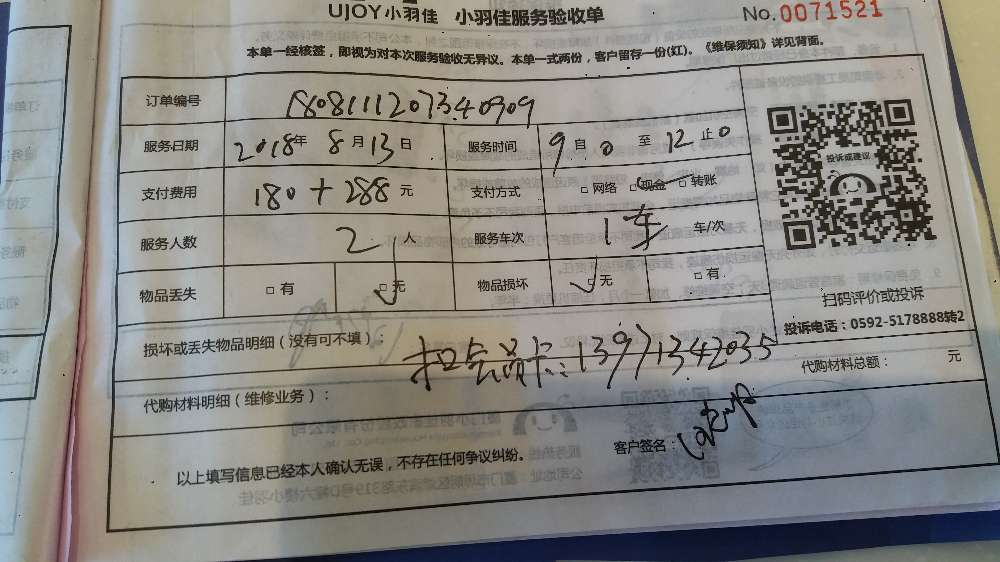 UJOY小羽佳 小羽佳服务验收单 No.0071521
本单一经核签，即视为对本次服务验收无异议。本单一式两份，客户留存一份(红)。《维保须知》详见背面。
订单编号 1808111207340909
服务日期 2018年8月13日 服务时间 9自0至12止0
支付费用 180+288元 支付方式 □网络 □现金 □转账
投诉或建议
服务人数 2人 服务车次 1车 车/次
物品丢失 □有 □无 物品损坏 □无 □有
扫码评价或投诉
投诉电话：0592-5178888转2
损坏或丢失物品明细（没有可不填）：
扣会员卡：13971342035
代购材料明细（维修业务）： 代购材料总额： 元
以上填写信息已经本人确认无误，不存在任何争议纠纷。 客户签名：